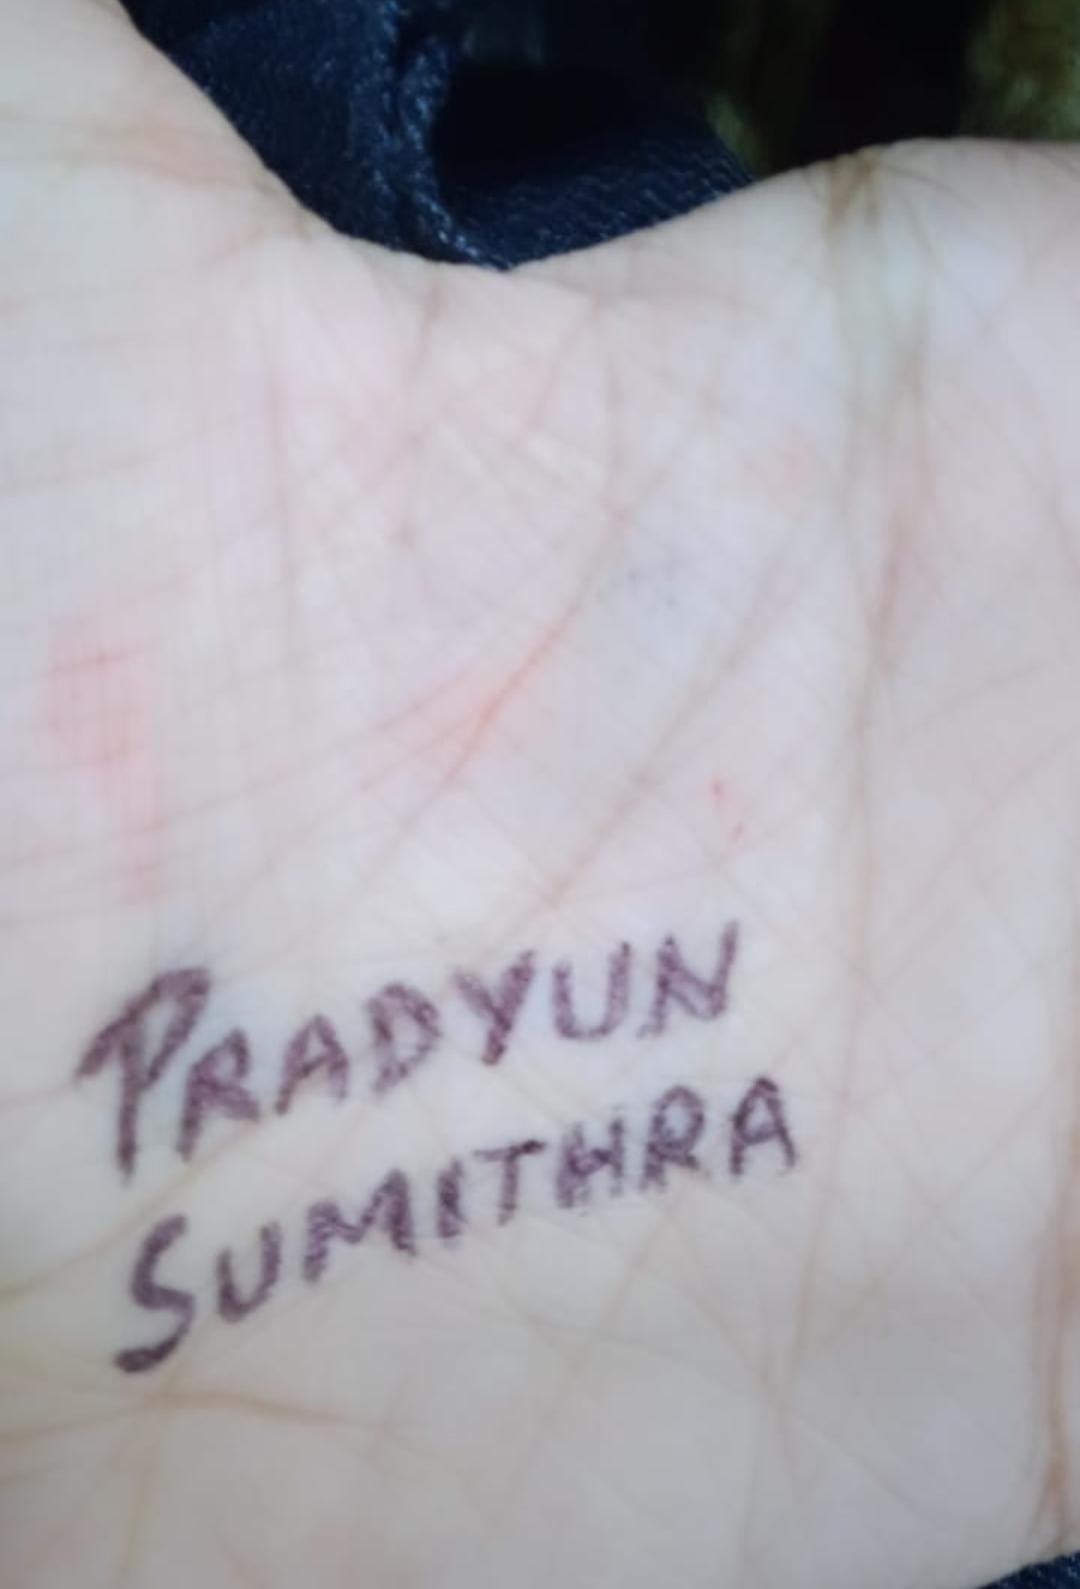 PRADYUN
SUMITHRA